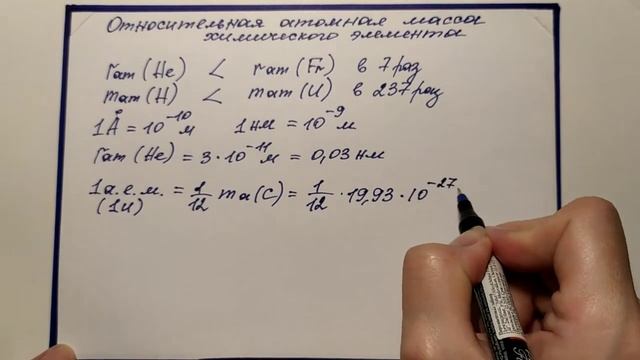 Относительная атомная масса
химического элемента
rат (He) < rат (Fr) в 7 раз
mат (H) < mат (U) в 237 раз
1Å = 10⁻¹⁰ м 1 нм = 10⁻⁹ м
rат (He) = 3 · 10⁻¹¹ м = 0,03 нм
1 а.е.м. = 1/12 ma (C) = 1/12 · 19,93 · 10⁻²⁷
(1u)